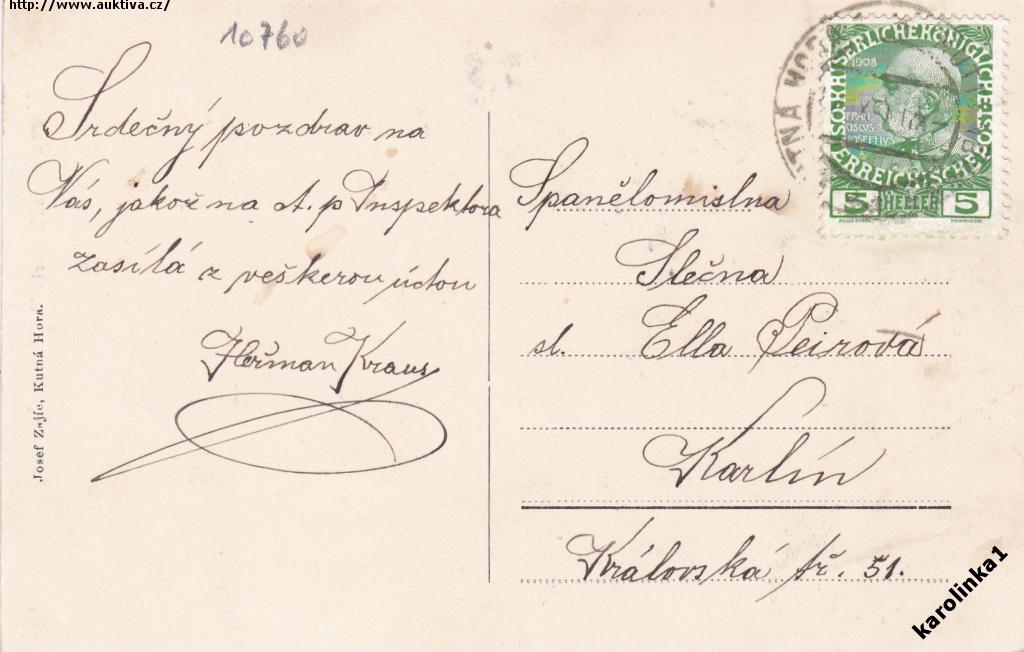 http://www.auktiva.cz/
10760
Srdečný pozdrav na
Vás, jakož na ct. p Inspektora
zasílá z veškerou úctou
Heřman Kraus
Josef Zajíc, Kutná Hora.
KAISERLICHE KÖNIGLICHE
1908
FRAN
CISCVS
IOSEPHVS
ÖSTERREICHISCHE
5 HELLER 5
Spanělomislna
Slečna
sl. Ella Peirová
Karlín
Královská tř. 51.
karolinka1